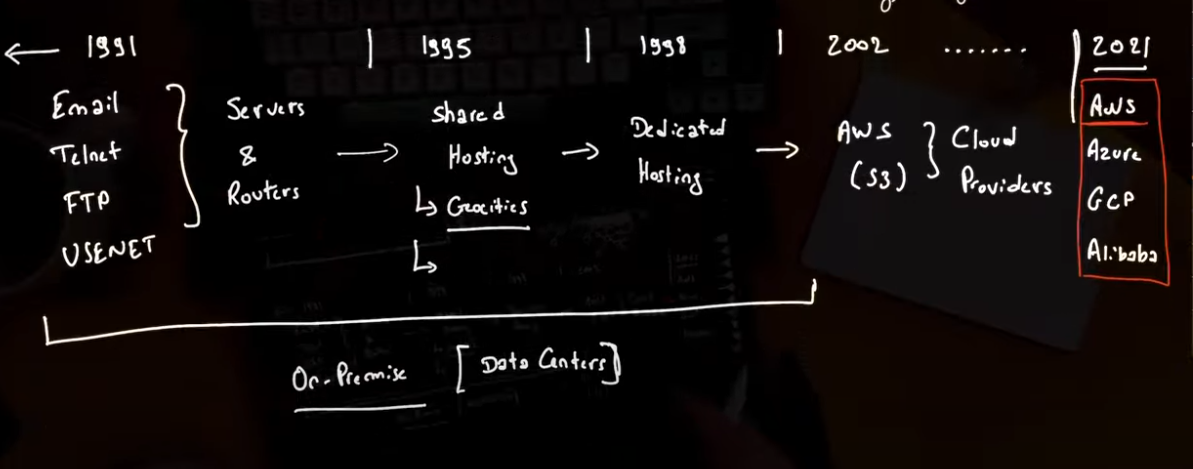 ← 1991 | 1995 | 1998 | 2002 ....... | 2021
Email
Telnet
FTP
USENET
Servers
&
Routers
→
Shared
Hosting
↳ Geocities
↳
→
Dedicated
Hosting
→
AWS
(S3)
Cloud
Providers
AWS
Azure
GCP
Alibaba
On-Premise [Data Centers]